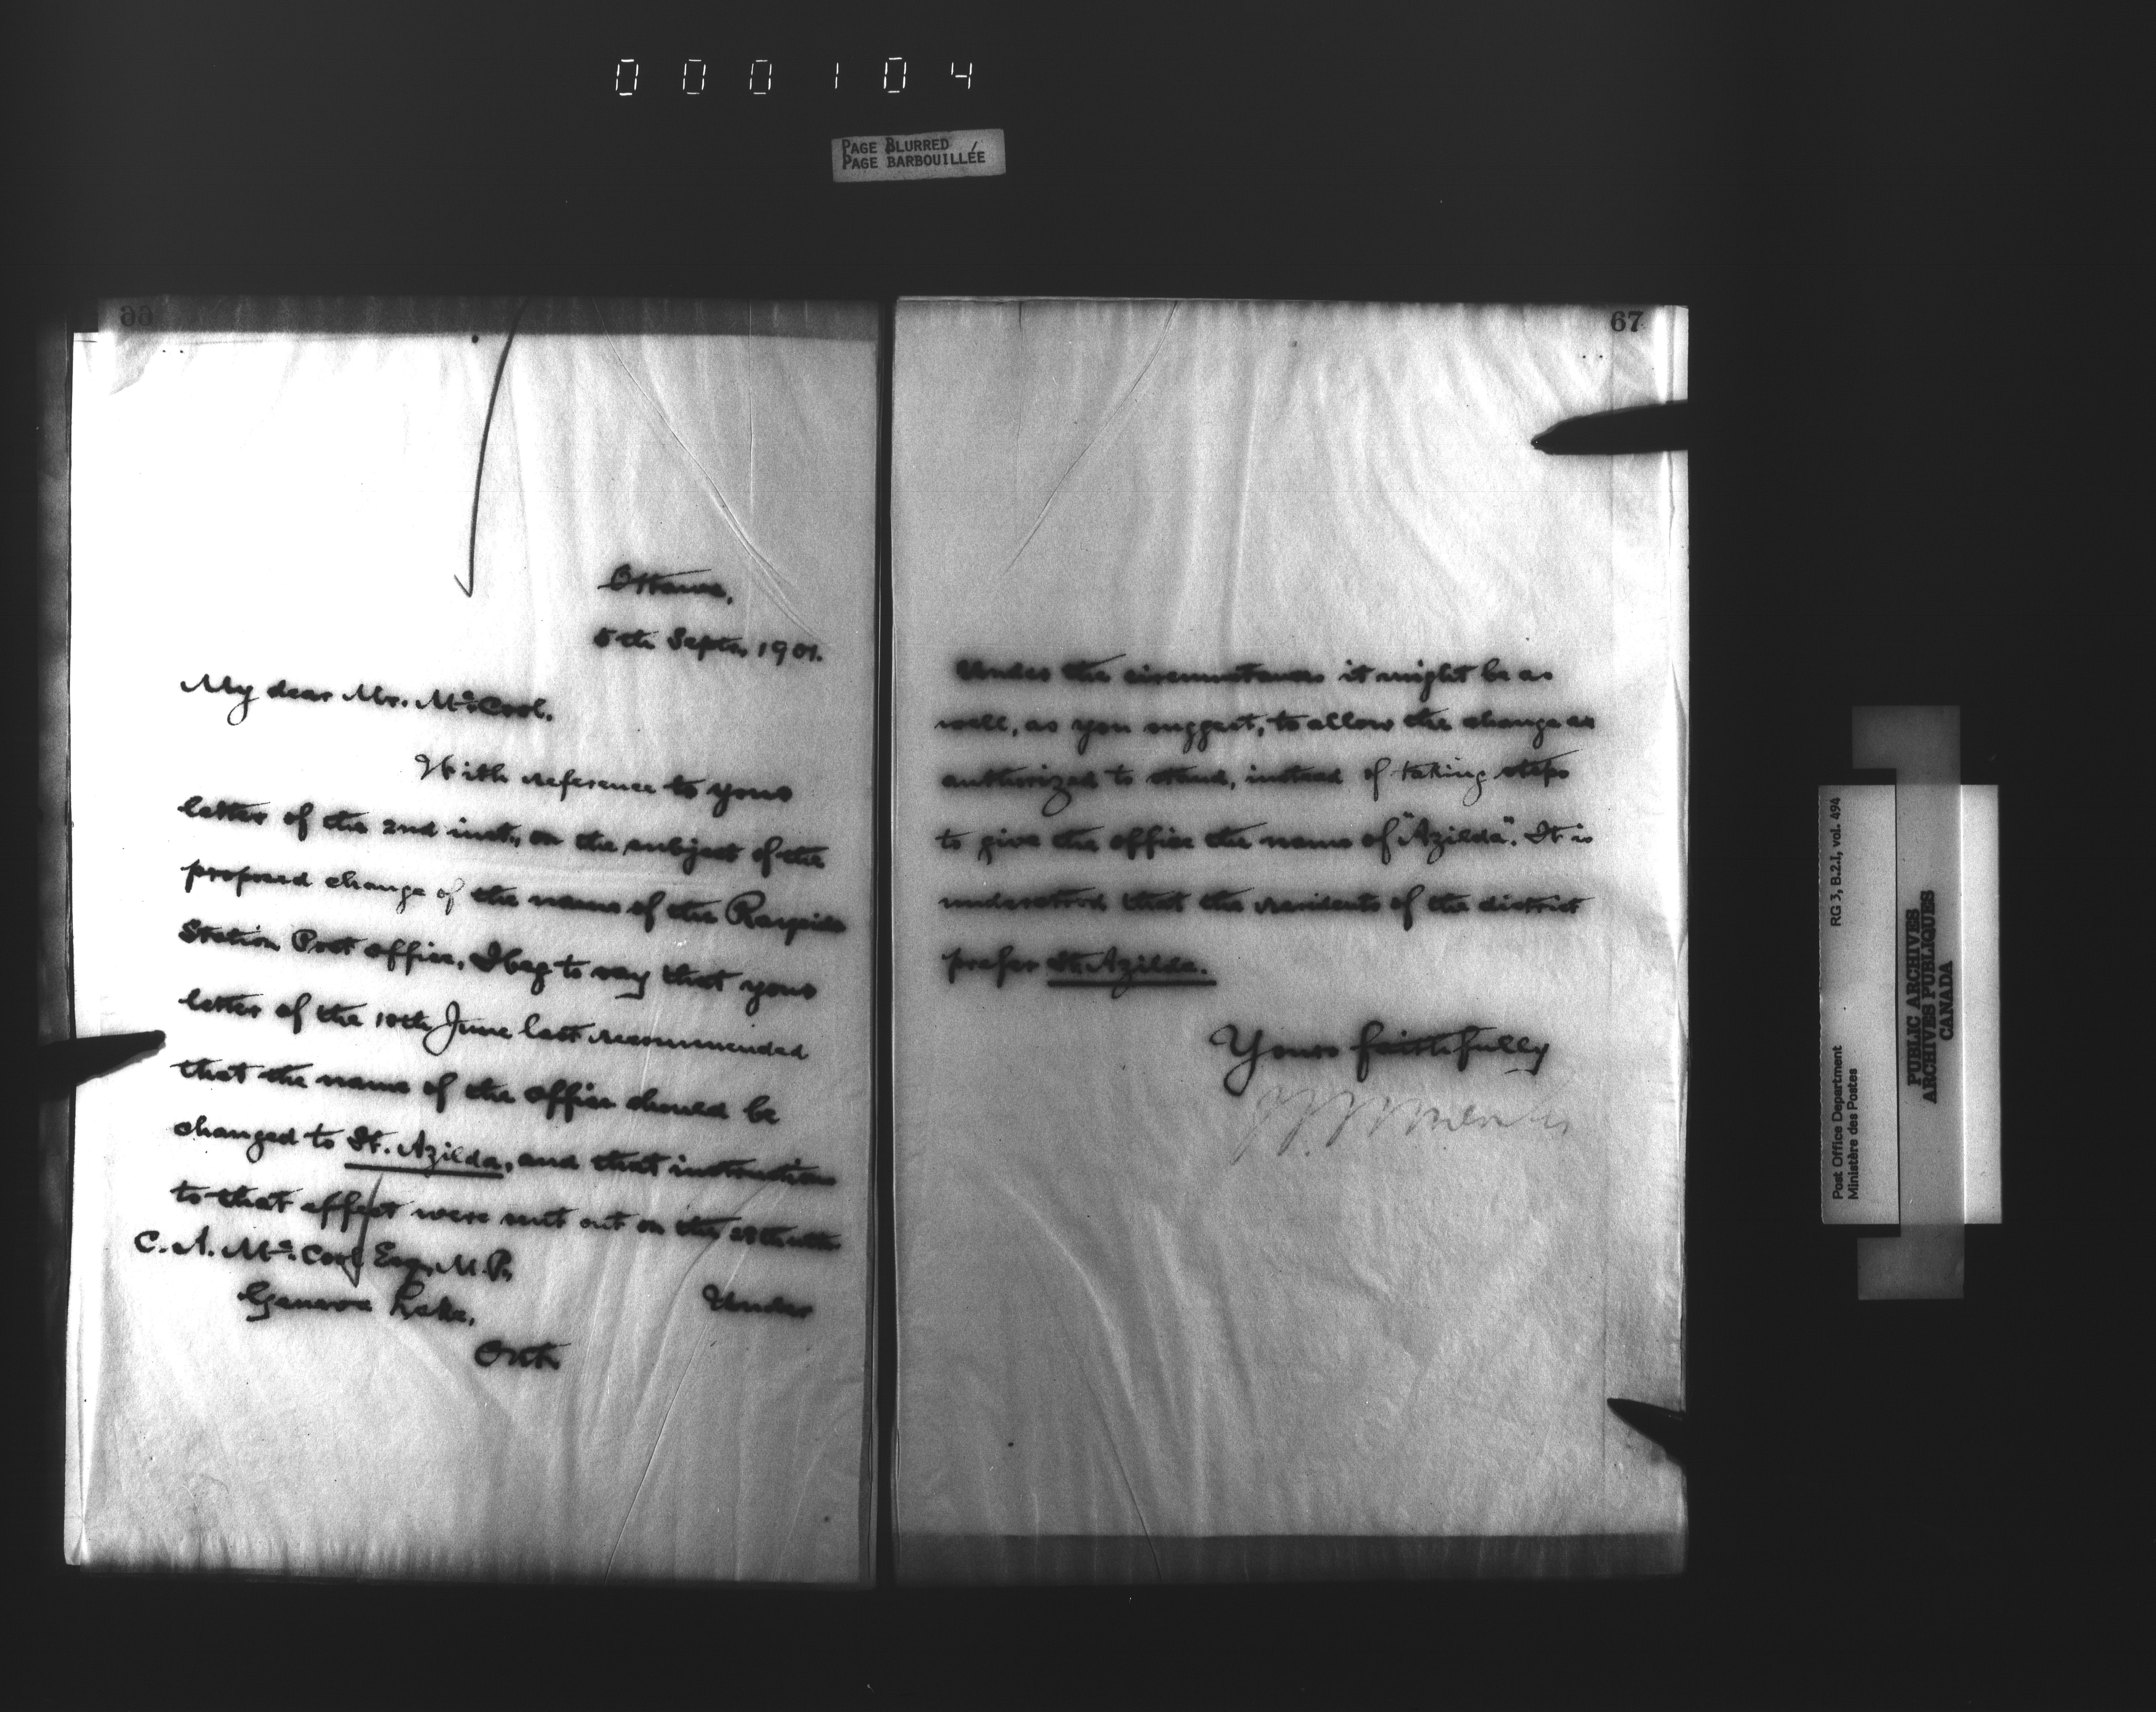 000104
PAGE BLURRED
PAGE BARBOUILLÉE
66
Ottawa,
5th Septr, 1901.
My dear Mr. McCool,
With reference to your
letter of the 2nd inst., on the subject of the
proposed change of the name of the Rayside
Station Post office, I beg to say that your
letter of the 10th June last recommended
that the name of the office should be
changed to St. Azilda, and that instructions
to that effect were sent out on the
C. A. McCool Esq., M.P.
Geneva Lake,
Under
Ont.
67
Under the circumstances it might be as
well, as you suggest, to allow the change as
authorized to stand, instead of taking steps
to give the office the name of "Azilda". It is
understood that the residents of the district
prefer St. Azilda.
Yours faithfully
RG 3, B.2.I, vol. 494
Post Office Department
Ministère des Postes
PUBLIC ARCHIVES
ARCHIVES PUBLIQUES
CANADA